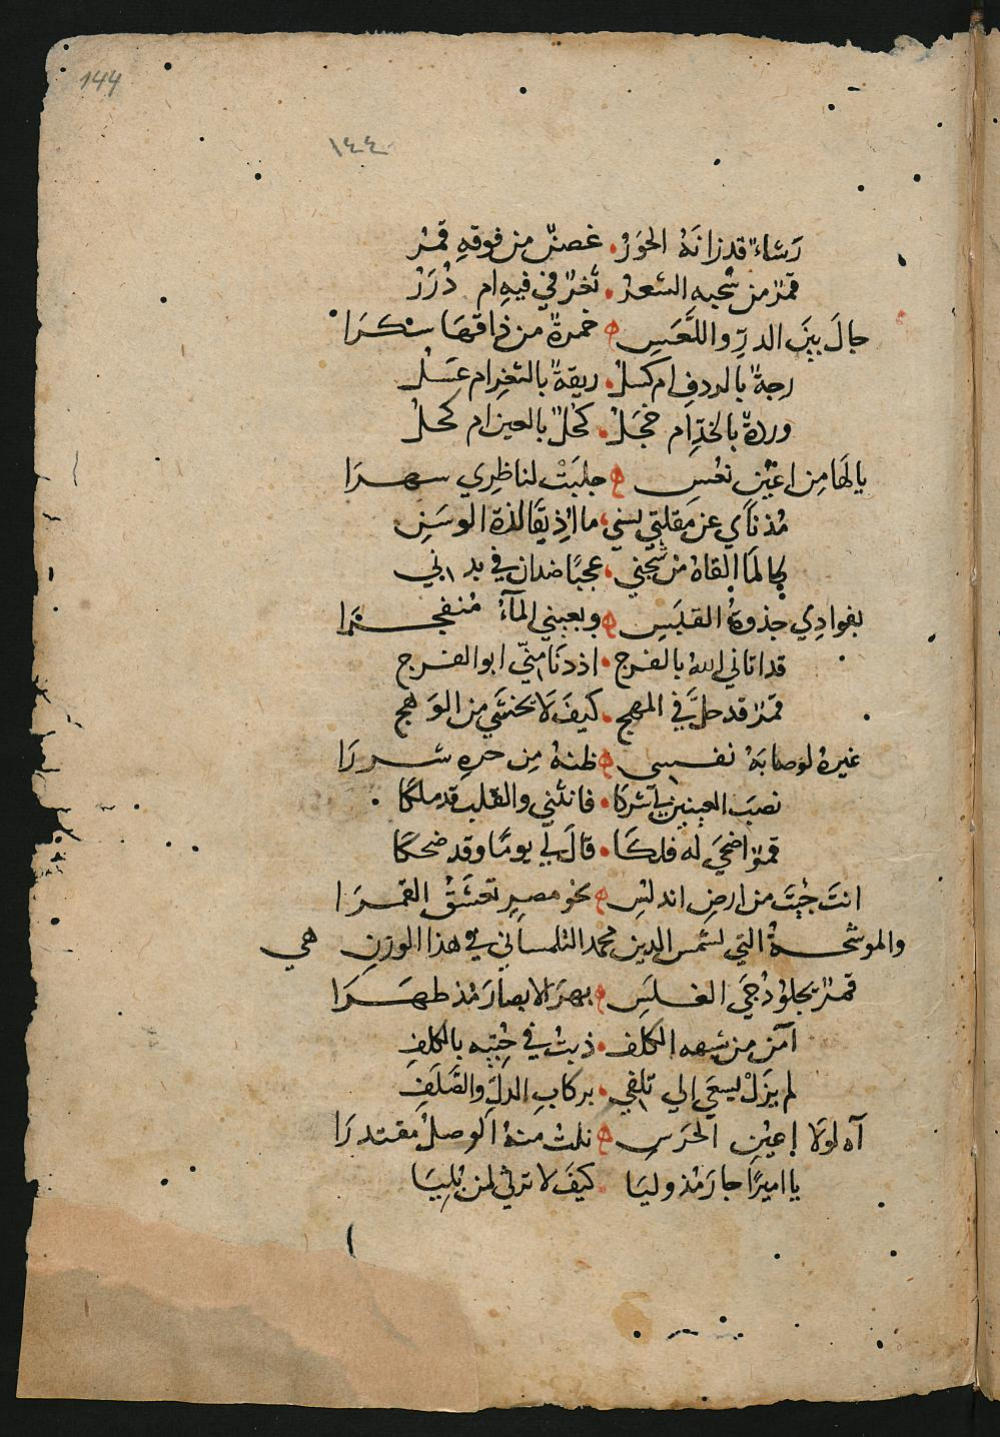 144
١٤٤
رَشاءٌ قد زانَهُ الحَوَرُ . غصنٌ من فوقهِ قمرُ
قمرٌ من سُحبهِ الشعرُ . ثغرٌ في فيهِ ام دُرَرُ
جالَ بينَ الدرِّ واللَّعَسِ ه خمرةٌ من ذاقهَا سكرَا
رجةٌ بالردفِ ام كسلُ . ريقةٌ بالثغرِ ام عَسَلُ
وردةٌ بالخدِّ ام خجَلُ . كحُلٌ بالعين ام كحلُ
يا لهَا مِن اعيُنٍ نعُسِ ه جلبَتْ لناظِري سهرَا
مُذ نأَي عن مَقلتي سني ، ما اذِيقَا لذة الوسَنِ
طالمَا القاهُ من شجني ، عجبًا ضدان في بدني
بفوادِي جذوةُ القبَسِ ه وبعيني المآءُ منفجرَا
قد اتاني اللهُ بالفرج . اذ دنَا منّي ابو الفرج
قمرٌ قد حلَّ في المهج . كيفَ لَا يخشَي من الوَهج
غيرهُ لو صابَهُ نفسي ه ظنهُ مِن حرهِ شررَا
نصبَ العينين لي شركَا . فانثني والقلب قد ملكَا .
قمرٌ اضحَي له فلكَا . قالَ لي يومًا وقد ضحكَا
انتَ جيتَ من ارضِ اندلسِ ه نحو مصرٍ تعشَقُ القمرَا
والموشحةُ التي لشمس الدين محمد التلمساني في هذا الوزنِ هي
قمرٌ يجلوُ دُجَي الغلسِ ه بهرَ الابصارَ مُذ ظهرَا
آمنٌ من شبهه الكلف . ذبتُ في حُبِّه بالكلفِ
لم يزَلْ ليسعَي الي تلفي . بركابِ الدلِّ والصَّلَفِ
آه لولَا اعيُنِ الحرَسِ ه نلتُ منهُ الوصلُ مقتدرَا
يا اميرًا جارَ مُذ وليَا . كيفَ لا ترثي لمن بُليَا